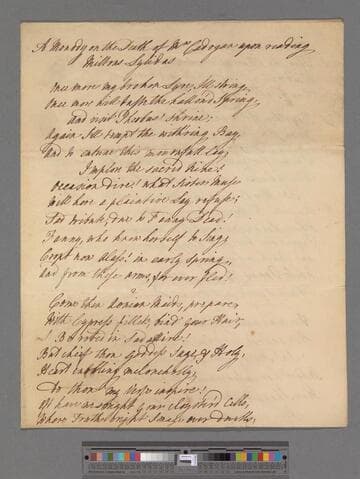 A Monody on the Death of Mrs Cadogan upon reading
Miltons Lycidas
Once more my broken Lyre, Ill string,
Once more will taste the hallow'd Spring,
And visit Phoebus' Shrine;
Again Ill tempt the with'ring Bay,
And to enliven this mournfull Lay,
Implore the sacred Nine!
Occasion dire! what Muse
Will here a plaintive Lay refuse;
Sad tribute, due to Fanny Dead!
Fanny, who knew herself to Sing,
Cropt now alass! in early Spring,
And from these arms, for ever fled!
2
Come then Aonian Maids, prepare,
With Cypress fillets, bind your Hair,
Be robes in Sad attire!
But chief thou Goddess Sage & Holy,
Heart melancholy,
Do thou my Verse inspire!
If have we sought your cloyster'd Cells,
Where Truth bright ever dwells,